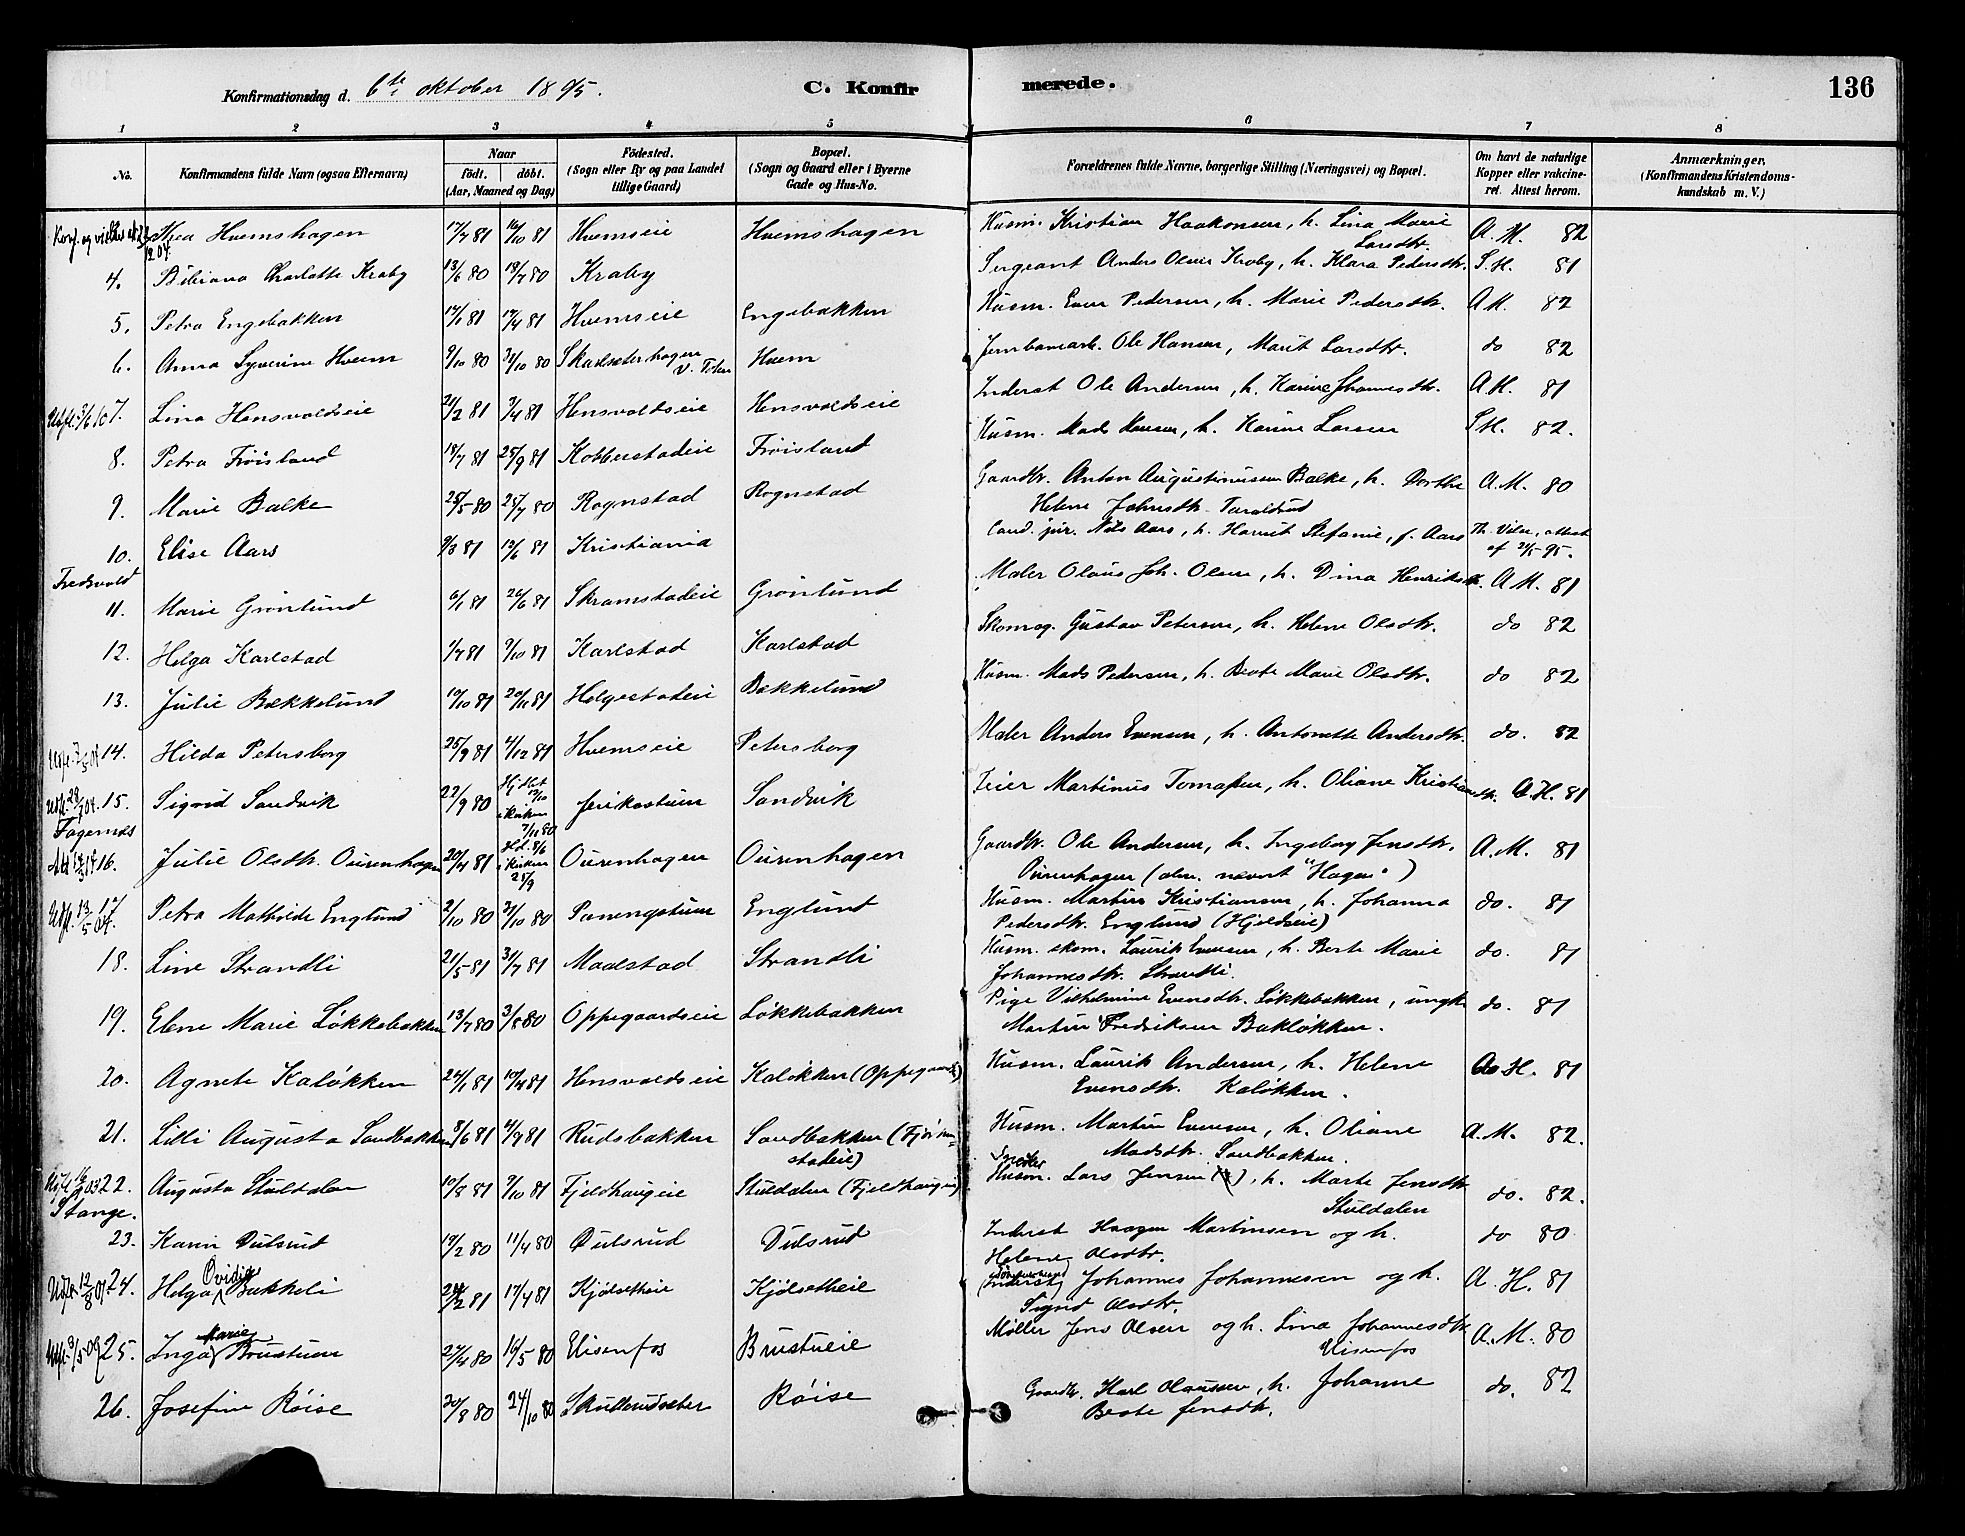 Konfirmationsdag d. 6te oktober 1895. C. Konfirmerede. 136
1 2 3 4 5 6 7 8
No. Konfirmandens fulde Navn (ogsaa Efternavn) Naar født. døbt. (Aar, Maaned og Dag) Födested. (Sogn eller By og paa Landet tillige Gaard) Bopæl. (Sogn og Gaard eller i Byerne Gade og Hus-No. Forældrenes fulde Navne, borgerlige Stilling (Næringsvei) og Bopæl. Om havt de naturlige Kopper eller vakcineret. Attest herom. Anmærkninger. (Konfirmandens Kristendomskundskab m. V.)
Thea Huemshagen 17/7 81 16/10 81 Huemseie Huemshagen Husm. Kristian Haakonsen, h. Lina Marie Larsdtr. A. M. 82
4. Bibiana Charlotte Kraby 13/6 80 18/7 80 Kraby Sergeant Anders Olsen Kraby, h. Klara Pedersdtr. S. H. 81
5. Petra Engebakken 17/1 81 17/4 81 Huemseie Engebakken Husm. Even Pedersen, h. Marie Pedersdtr. A M. 82
6. Anna Syverine Huem 9/10 80 31/10 80 Skadseterhagen V. Toten Huem Jernbanearb. Ole Hansen, Marit Larsdtr. do 82
7. Lina Hensvoldseie 21/2 81 3/4 81 Hensvoldseie Hensvoldseie Inderst Ole Andersen, h. Karine Johannesdtr. A H. 81
8. Petra Frøisland 18/7 81 25/9 81 Kobberstadeie Frøisland Husm. Mads Hansen, h. Karine Larsen S H. 82.
9. Marie Balke 25/5 80 25/7 80 Rognstad Rognstad Gaardbr. Anton Augustinussen Balke, h. Dorthe Helene Johnsdtr. A. M. 80
10. Elise Aars 9/3 81 12/6 81 Kristiania Cand. jur. Nils Aars, h. Harriet Stefanie, f. Aars attest af 21/5-95.
Fredsvold
11. Marie Grønlund 6/1 81 26/6 81 Skramstadeie Grønlund Maler Olaus Joh. Olsen, h. Dina Henriksdtr. A M. 81
12. Helga Karlstad 1/7 81 9/10 81 Karlstad Karlstad Skomag. Gustav Petersen, h. Helene Olsdtr. do 82
13. Julie Bækkelund 10/10 81 20/11 81 Helgestadeie Bækkelund Husm. Mads Pedersen, h. Beate Marie Olsdtr. do 82
14. Hilda Petersborg 25/9 81 4/12 81 Huemseie Petersborg Maler Anders Evensen, h. Antonette Andersdtr. do. 82
15. Sigrid Sandvik 22/9 80 i kirken 7/11 80 Sandvik Leier Martinus Tomassen, h. Oliane Kristiansdtr. A. H. 81
Fagernes
16. Julie Olsdtr. Ourenhagen 20/4 81 i kirken 25/9 Ourenhagen Ourenhagen Gaardbr. Ole Andersen, h. Ingeborg Jensdtr. Ourenhagen (alm. nævnt "Hagen") A. M. 81
17. Petra Mathilde Englund 2/10 80 31/10 80 Englund Husm. Martin Kristiansen, h. Johanna Pedersdtr. Englund (Hjeldseie) do. 81
18. Line Strandli 21/5 81 31/7 81 Madstad Strandli Husm. skom. Laurits Evensen, h. Berte Marie Johannesdtr. Strandli. do. 81
19. Elene Marie Løkkebakken 13/7 80 3/8 80 Oppegaardseie Løkkebakken Pige Vilhelmine Evensdtr. Løkkebakken, ungk. Martin Fredriksen Bakløkken. do. 81
20. Agnete Kaløkken 24/1 81 10/4 81 Hensvoldseie Kaløkken (Oppegaard) Husm. Laurits Andersen, h. Helene Evensdtr. Kaløkken. A. H. 81
21. Lilli Augusta Sandbakken 8/6 81 4/7 81 Rudsbakken Sandbakken Husm. Martin Evensen, h. Oliane Madsdtr. Sandbakken. A. M. 82.
22. Augusta Stuldalen 10/8 81 9/10 81 Fjeldhaugeie Stuldalen (Fjeldhaugeie) Husm. Lars Jensen, h. Marte Jensdtr. Stuldalen do. 82.
Stange.
23. Karin Dulsrud 19/2 80 11/4 80 Dulsrud Dulsrud Inderst Haagen Martinsen og h. Helene Olsdtr. do 80
24. Helga Ovidia Bakkeli 24/2 81 17/4 81 Kjølsetheie Kjølsetheie Johannes Johannesen og h. Sigrid Olsdtr. A. H. 81
25. Inga Marie Brustuen 27/4 80 16/5 80 Elisenfos Brustueie Møller Jens Olsen og h. Lina Johannesdtr. Elisenfos A. M. 80
26. Josefine Røise 30/8 80 24/10 80 Skullerudseter Røise Gaardbr. Karl Olaussen, h. Johanne Beate Jensdtr. do. 82